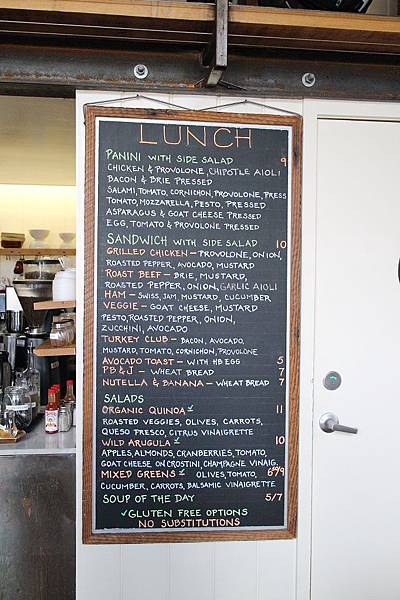 LUNCH
PANINI WITH SIDE SALAD 9
CHICKEN & PROVOLONE, CHIPOTLE AIOLI
BACON & BRIE PRESSED
SALAMI, TOMATO, CORNICHON, PROVOLONE, PRESS
TOMATO, MOZZARELLA, PESTO, PRESSED
ASPARAGUS & GOAT CHEESE PRESSED
EGG, TOMATO & PROVOLONE PRESSED
SANDWICH WITH SIDE SALAD 10
GRILLED CHICKEN - PROVOLONE, ONION,
ROASTED PEPPER, AVOCADO, MUSTARD
ROAST BEEF - BRIE, MUSTARD,
ROASTED PEPPER, ONION, GARLIC AIOLI
HAM - SWISS, JAM, MUSTARD, CUCUMBER
VEGGIE - GOAT CHEESE, MUSTARD
PESTO, ROASTED PEPPER, ONION,
ZUCCHINI, AVOCADO
TURKEY CLUB - BACON, AVOCADO,
MUSTARD, TOMATO, CORNICHON, PROVOLONE
AVOCADO TOAST - WITH HB EGG 5
PB & J - WHEAT BREAD 7
NUTELLA & BANANA - WHEAT BREAD 7
SALADS
ORGANIC QUINOA ✓ 11
ROASTED VEGGIES, OLIVES, CARROTS,
QUESO FRESCO, CITRUS VINAIGRETTE
WILD ARUGULA ✓ 10
APPLES, ALMONDS, CRANBERRIES, TOMATO,
GOAT CHEESE ON CROSTINI, CHAMPAGNE VINAIG.
MIXED GREENS ✓ OLIVES, TOMATO,
CUCUMBER, CARROTS, BALSAMIC VINAIGRETTE
SOUP OF THE DAY 5/7
✓ GLUTEN FREE OPTIONS
NO SUBSTITUTIONS